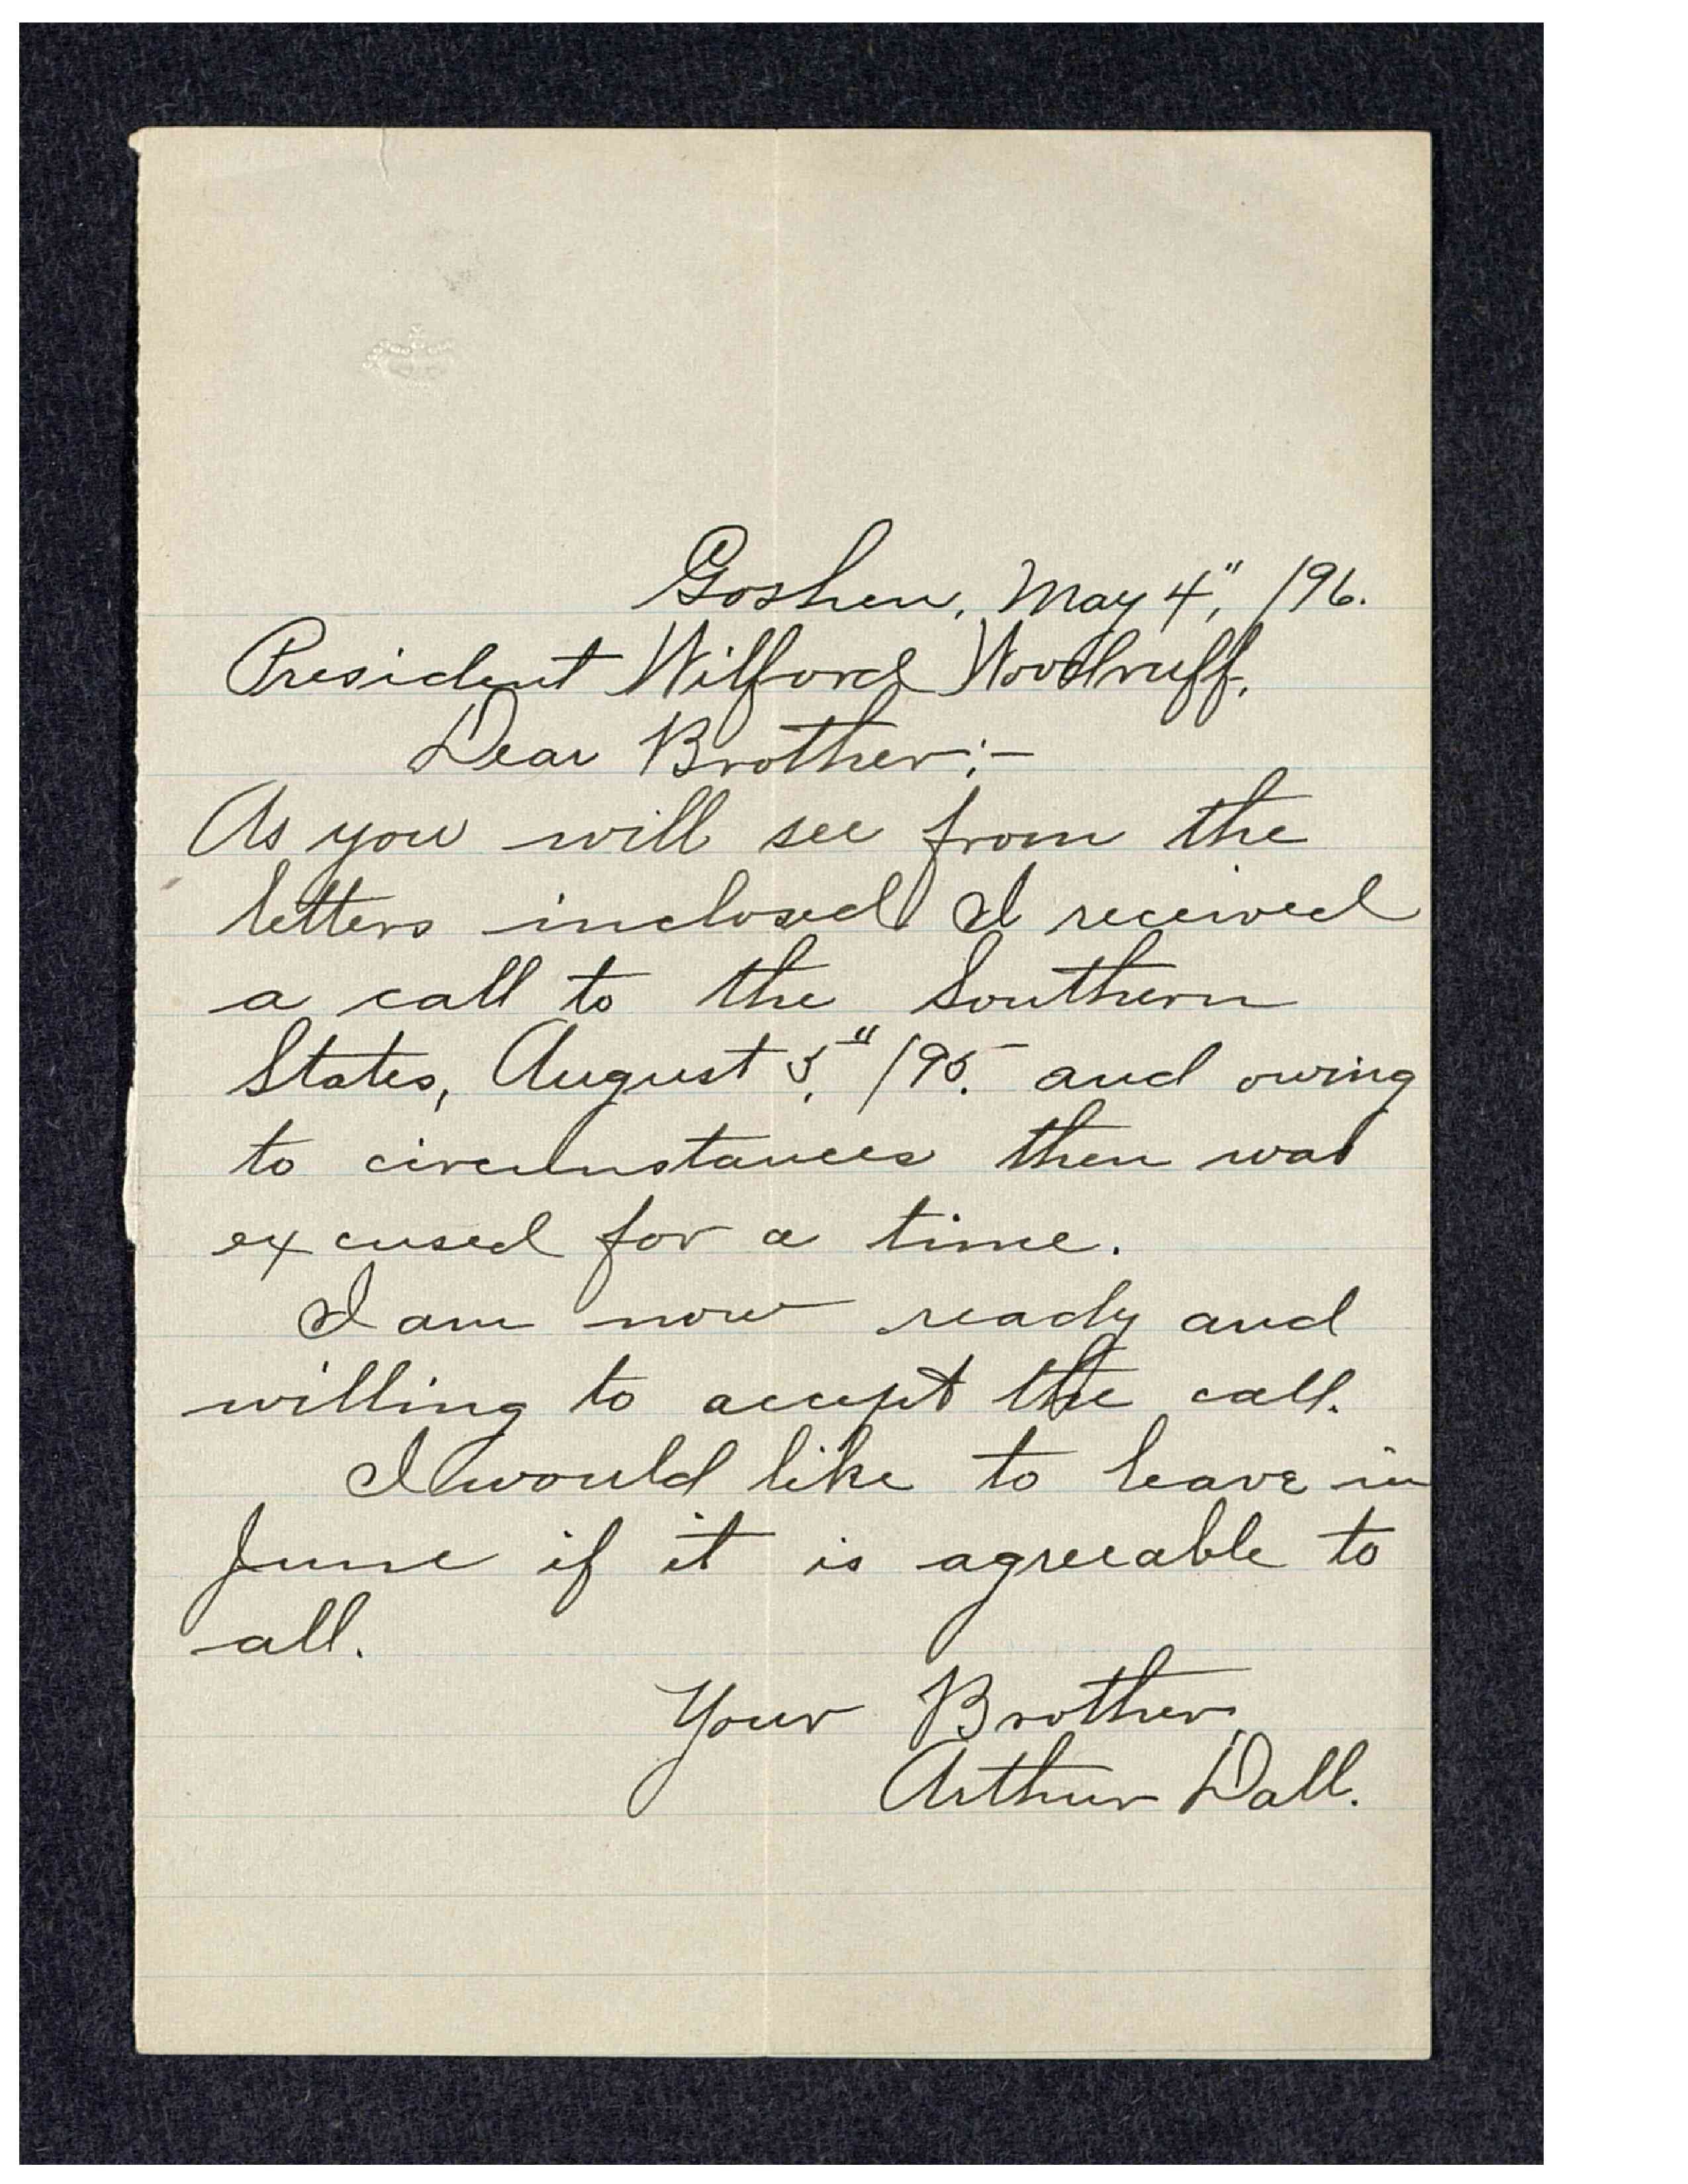 Goshen, May 4", /96.
President Wilford Woodruff,
Dear Brother:-
As you will see from the
letters inclosed I received
a call to the Southern
States, August 5," /95. and owing
to circumstances then was
excused for a time.
I am now ready and
willing to accept the call.
I would like to leave in
June if it is agreeable to
all.
Your Brother
Arthur Dall.